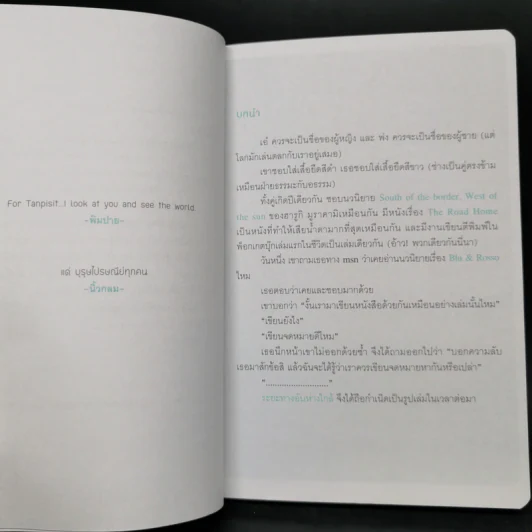 For Tanpisit..I look at you and see the world.
-พิมปาย-
แด่ บุรุษไปรษณีย์ทุกคน
-นิ้วกลม-
บทนำ
เอ๋ ควรจะเป็นชื่อของผู้หญิง และ พ่ง ควรจะเป็นชื่อของผู้ชาย (แต่
โลกมักเล่นตลกกับเราอยู่เสมอ)
เขาชอบใส่เสื้อยืดสีดำ เธอชอบใส่เสื้อยืดสีขาว (ช่างเป็นคู่ตรงข้าม
เหมือนฝ่ายธรรมะกับอธรรม)
ทั้งคู่เกิดปีเดียวกัน ชอบนวนิยาย South of the border, West of
the sun ของฮารูกิ มูราคามิเหมือนกัน มีหนังเรื่อง The Road Home
เป็นหนังที่ทำให้เสียน้ำตามากที่สุดเหมือนกัน และมีงานเขียนตีพิมพ์ใน
พ็อกเกตบุ๊กเล่มแรกในชีวิตเป็นเล่มเดียวกัน (อ้าว! พวกเดียวกันนี่นา)
วันหนึ่ง เขาถามเธอทาง msn ว่าเคยอ่านนวนิยายเรื่อง Blu & Rosso
ไหม
เธอตอบว่าเคยและชอบมากด้วย
เขาบอกว่า "งั้นเรามาเขียนหนังสือด้วยกันเหมือนอย่างเล่มนั้นไหม"
"เขียนยังไง"
"เขียนจดหมายดีไหม"
เธอนึกหน้าเขาไม่ออกด้วยซ้ำ จึงได้ถามออกไปว่า "บอกความลับ
เธอมาสักข้อสิ แล้วฉันจะได้รู้ว่าเราควรเขียนจดหมายหากันหรือเปล่า"
"............................"
ระยะทางอันห่างใกล้ จึงได้ถือกำเนิดเป็นรูปเล่มในเวลาต่อมา